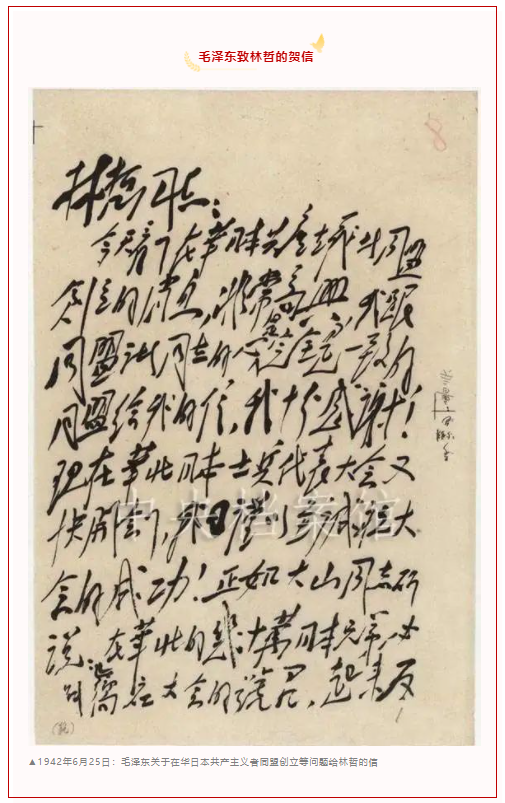 毛泽东致林哲的贺信
8
林哲同志：
今天看了在华日本共产主义者同盟
创立的消息，非常高兴，我跟
同盟诸同志的意见是完全一致的
同盟给我的信，我十分感谢！
现在华北日本士兵代表大会又
快开 大
会的成功！正如大山同志所
说：在华北的几十万日本兄弟必
在大会的号召，起来反
中央档案馆
▲1942年6月25日：毛泽东关于在华日本共产主义者同盟创立等问题给林哲的信